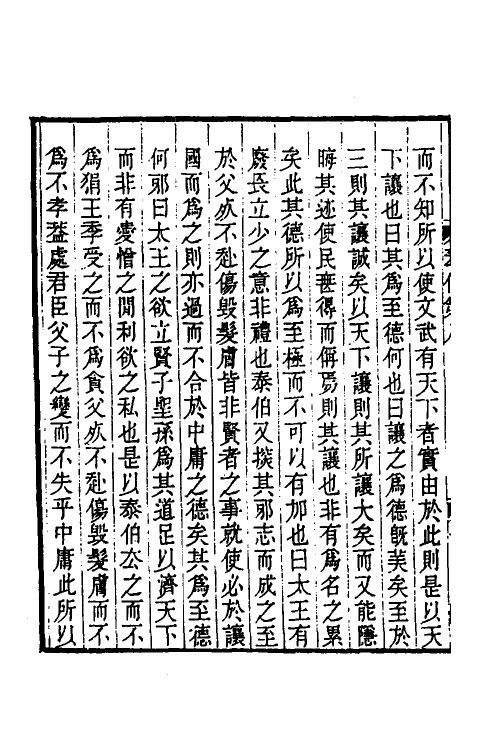 而不知所以使文武有天下者實由於此則是以天
下讓也曰其爲至德何也曰讓之爲德旣美矣至於
三則其讓誠矣以天下讓則其所讓大矣而又能隱
晦其迹使民無得而稱焉則其讓也非有爲名之累
矣此其德所以爲至極而不可以有加也曰太王有
廢長立少之意非禮也泰伯又探其邪志而成之至
於父死不赴傷毀髮膚皆非賢者之事就使必於讓
國而爲之則亦過而不合於中庸之德矣其爲至德
何邪曰太王之欲立賢子聖孫爲其道足以濟天下
而非有愛憎之閒利欲之私也是以泰伯去之而不
爲狷王季受之而不爲貪父死不赴傷毀髮膚而不
爲不孝蓋處君臣父子之變而不失乎中庸此所以